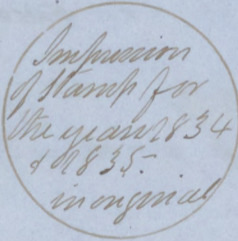 Impression
of Stamp for
the years 1834
& 1835.
in original